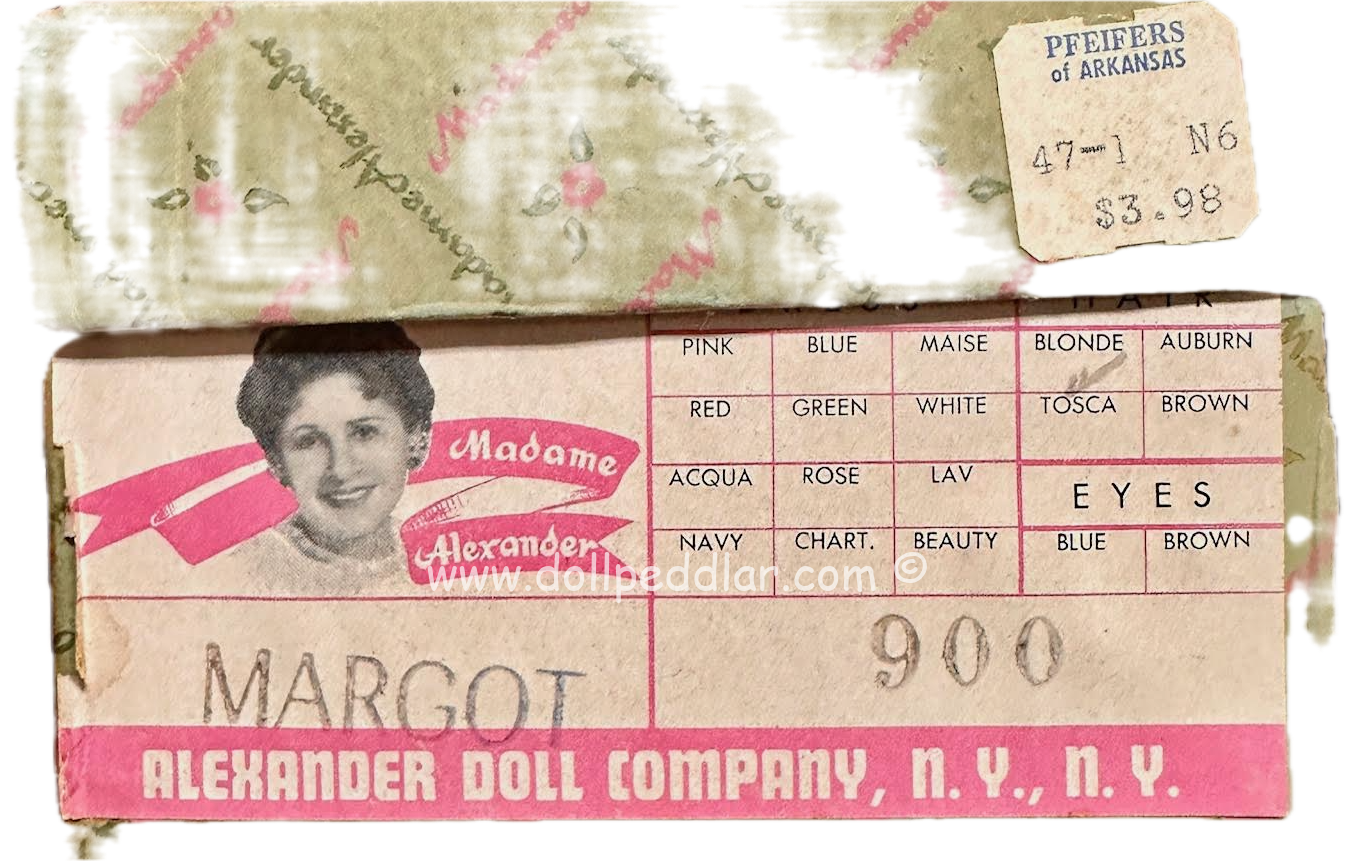 Madame Alexander
Madame Alexander
Madame
PFEIFERS
of ARKANSAS
47-1 N6
$3.98
HAIR
PINK BLUE MAISE BLONDE AUBURN
RED GREEN WHITE TOSCA BROWN
ACQUA ROSE LAV
EYES
NAVY CHART. BEAUTY BLUE BROWN
Madame
Alexander
www.dollpeddlar.com ©
MARGOT
900
ALEXANDER DOLL COMPANY, N. Y., N. Y.